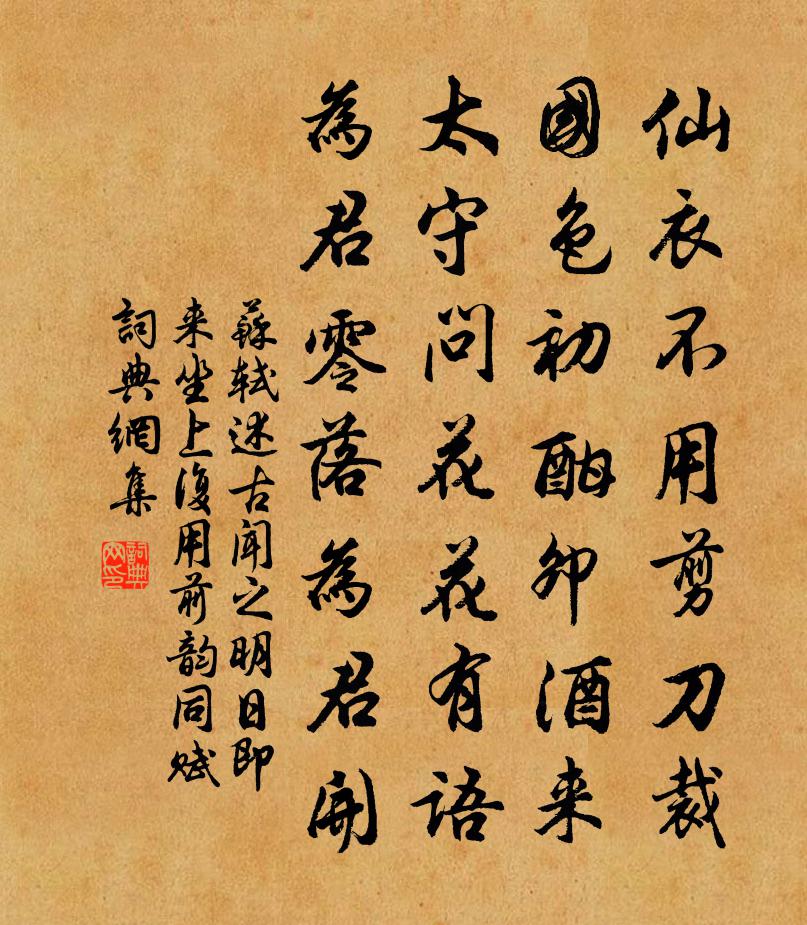 仙衣不用剪刀裁
國色初酣卯酒来
太守問花花有語
為君零落為君開
蘇軾述古聞之明日即
来坐上復用前韻同賦
詞典網集
詞典网印